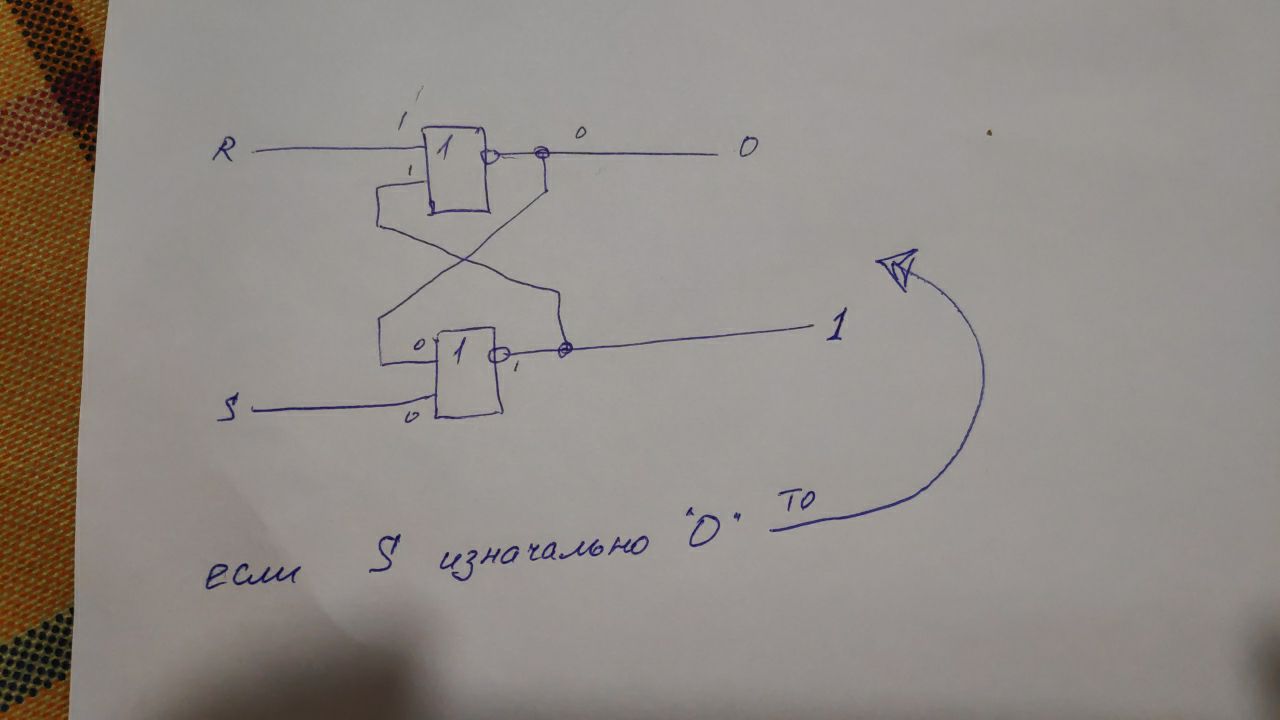 R 1 1 1 0 0
0 1 1 1
S 0
если S изначально "0" то